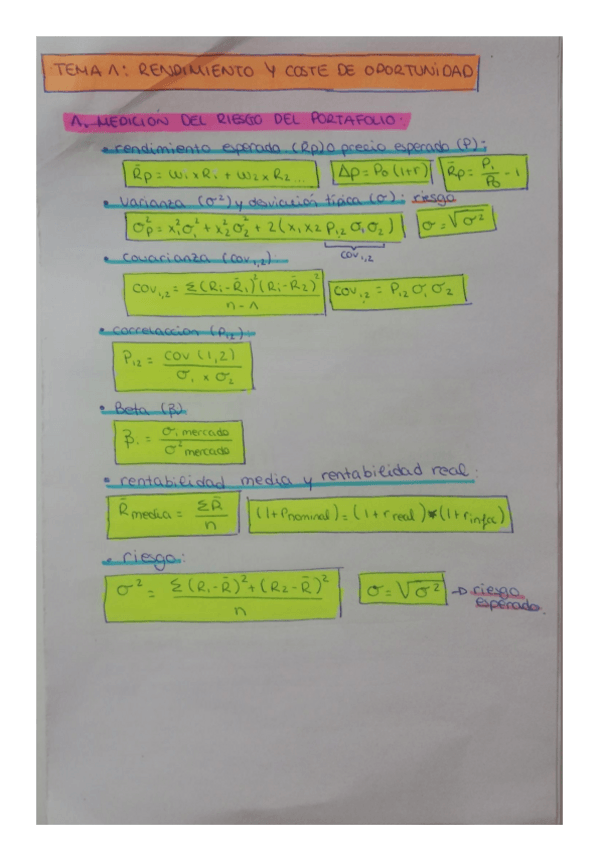 TEMA 1: RENDIMIENTO Y COSTE DE OPORTUNIDAD
1. MEDICIÓN DEL RIESGO DEL PORTAFOLIO:
• rendimiento esperado (Rp) o precio esperado (P):
R̄p = w₁ x R₁ + w₂ x R₂... Δp = P₀ (1+r) R̄p = P₁/P₀ - 1
• Varianza (σ²) y desviación típica (σ): riesgo
σ²p = x₁² σ₁² + x₂² σ₂² + 2 (x₁ x₂ P₁₂ σ₁ σ₂) σ = √σ²
cov₁,₂
• covarianza (cov₁,₂):
cov₁,₂ = Σ (R₁ - R̄₁)² (R₁ - R̄₂)² / n - 1 cov₁,₂ = P₁₂ σ₁ σ₂
• correlaccion (P₁₂):
P₁₂ = cov (1,2) / σ₁ x σ₂
• Beta (β)
β₁ = σ₁ mercado / σ² mercado
• rentabilidad media y rentabilidad real:
R̄ media = ΣR̄ / n (1 + r nominal) = (1 + r real) * (1 + r infla)
• riesgo:
σ² = Σ (R₁ - R̄)² + (R₂ - R̄)² / n σ = √σ² → riesgo
esperado.